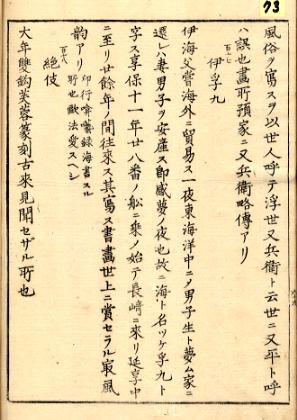 73
風俗ヲ寫スヲ以世人呼テ浮世又兵衛ト云世ニ又平ト呼
ハ誤也畫所預家ニ又兵衛略傳アリ
百十七
伊孚九
伊海父嘗海外ニ貿易ス一夜東海洋中ニメ男子生ト夢ム家ニ
還レハ妻男子ヲ安産ス即感夢ノ夜也故ニ海ト名ツケ孚九ト
字ス享保十一年廿八番ノ舩ニ乗メ始テ長﨑ニ来リ延享中
ニ至リ廿餘年ノ間往来ス其寫ス書畫世上ニ賞セラル寂風
韵アリ
印行喩麓録海書スル
所也歐法愛スヘシ
百十八
絶伎
大年雙鈎芙蓉篆刻古来見聞セザル所也